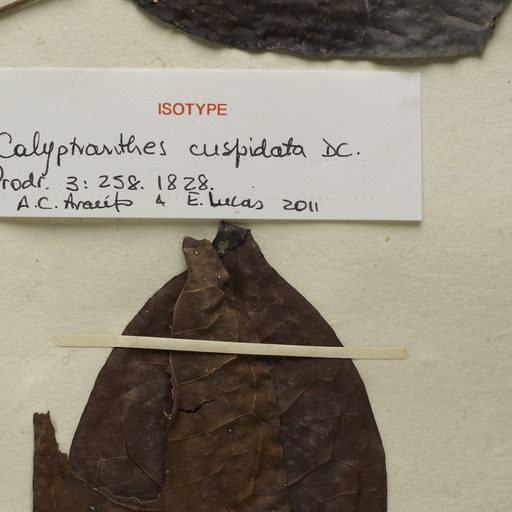 ISOTYPE
Calyptranthes cuspidata DC.
Prodr. 3: 258. 1828.
A.C. Araújo & E. Lucas 2011